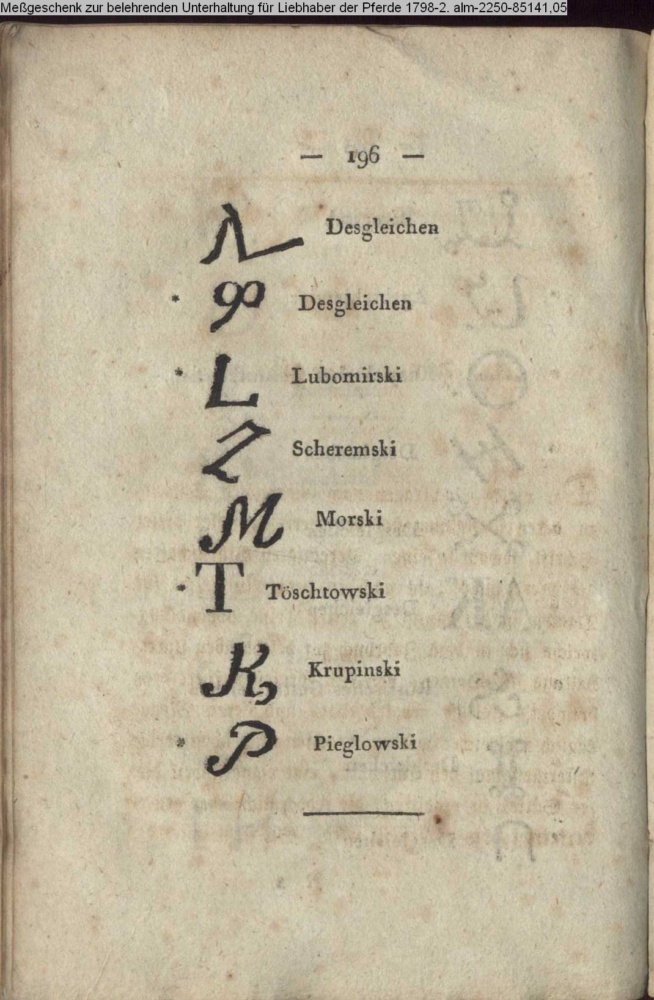 Meßgeschenk zur belehrenden Unterhaltung für Liebhaber der Pferde 1798-2. alm-2250-85141,05
— 196 —
Desgleichen
* Desgleichen
* L Lubomirski
Z Scheremski
M Morski
* T Töschtowski
K, Krupinski
* P Pieglowski